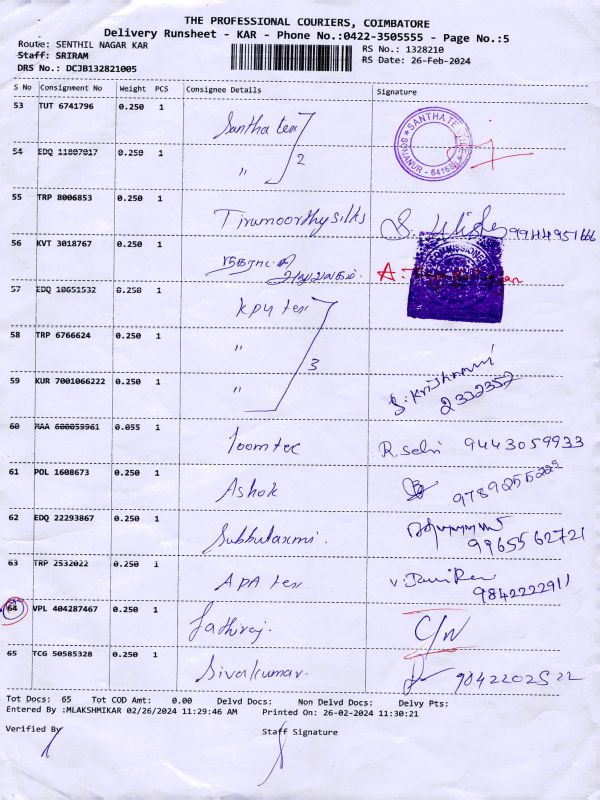 THE PROFESSIONAL COURIERS, COIMBATORE
Delivery Runsheet - KAR - Phone No.:0422-3505555 - Page No.:5
Route: SENTHIL NAGAR KAR RS No.: 1328210
Staff: SRIRAM RS Date: 26-Feb-2024
DRS No.: DCJB132821005
S No Consignment No Weight PCS Consignee Details Signature
53 TUT 6741796 0.250 1 Santha tex SANTHA
54 EDQ 11807017 0.250 1 " 2
55 TRP 8006853 0.250 1 Tirumoorthy silks 9944951666
56 KVT 3018767 0.250 1 COMMISSIONE
57 EDQ 10651532 0.250 1 KPY tex
58 TRP 6766624 0.250 1 "
59 KUR 7001066222 0.250 1 " 3 S. Krishnaveni
2332352
60 MAA 600059961 0.055 1 loomtec R. Selvi 9443059933
61 POL 1608673 0.250 1 Ashok
62 EDQ 22293867 0.250 1 Subbulaxmi. 9965562721
63 TRP 2532022 0.250 1 APA tex 9842222911
64 VPL 404287467 0.250 1 C/N
65 TCG 50585328 0.250 1 Sivakumar.
Tot Docs: 65 Tot COD Amt: 0.00 Delvd Docs: Non Delvd Docs: Delvy Pts:
Entered By :MLAKSHMIKAR 02/26/2024 11:29:46 AM Printed On: 26-02-2024 11:30:21
Verified By Staff Signature